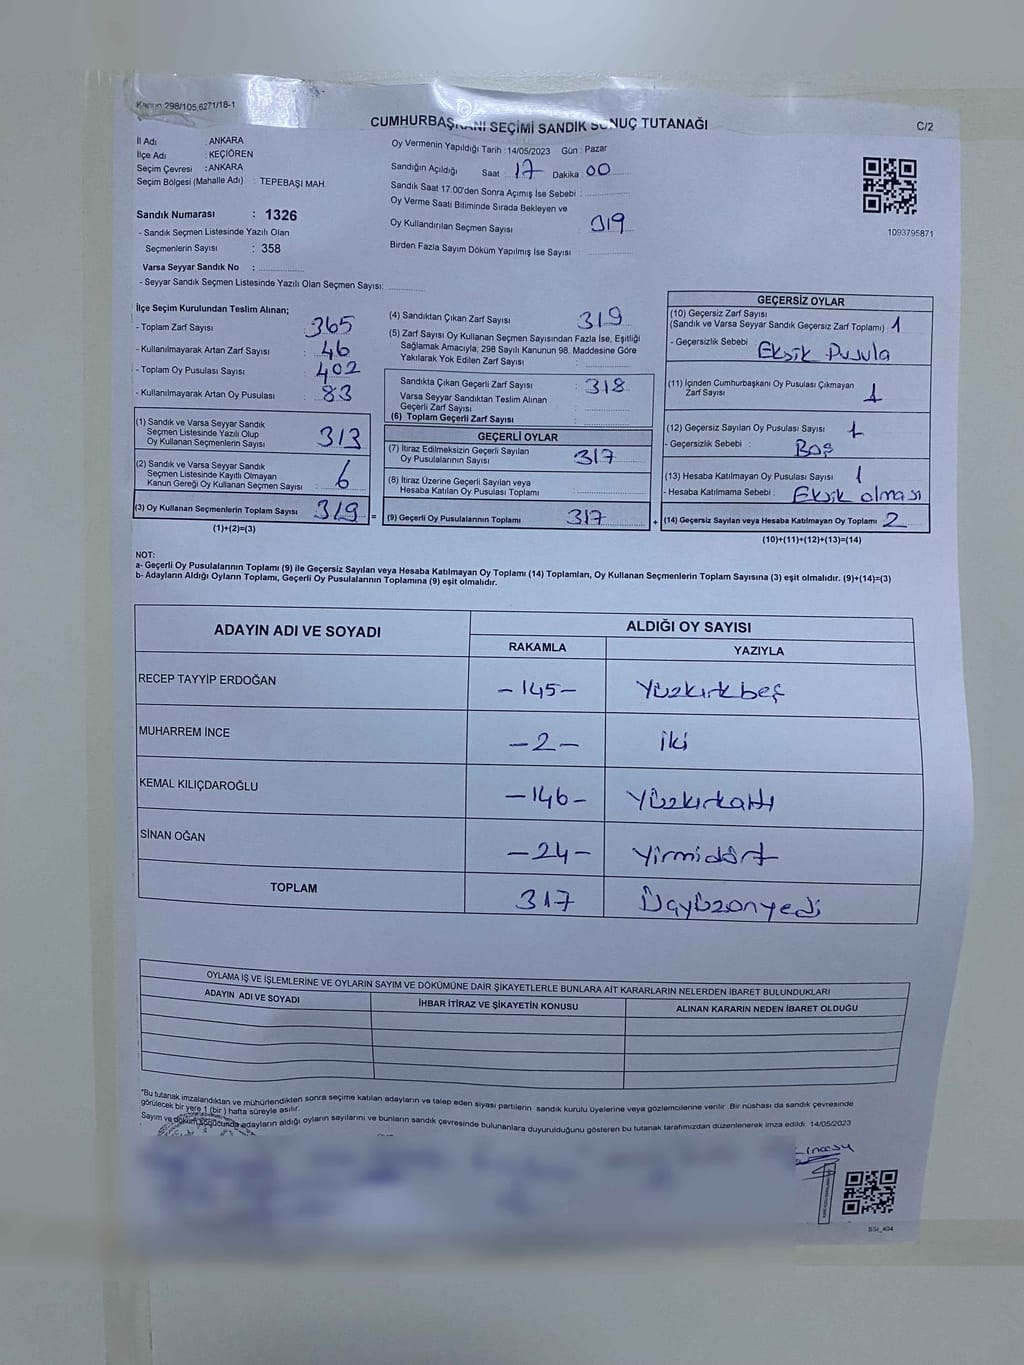 Kanun 298/105,6271/18-1
CUMHURBAŞKANI SEÇİMİ SANDIK SONUÇ TUTANAĞI
C/2
İl Adı : ANKARA
İlçe Adı : KEÇİÖREN
Seçim Çevresi : ANKARA
Seçim Bölgesi (Mahalle Adı) : TEPEBAŞI MAH.
Sandık Numarası : 1326
- Sandık Seçmen Listesinde Yazılı Olan
Seçmenlerin Sayısı : 358
Varsa Seyyar Sandık No :
- Seyyar Sandık Seçmen Listesinde Yazılı Olan Seçmen Sayısı:
Oy Vermenin Yapıldığı Tarih : 14/05/2023 Gün : Pazar
Sandığın Açıldığı Saat : 17 Dakika : 00
Sandık Saat 17.00'den Sonra Açımış İse Sebebi :
Oy Verme Saati Bitiminde Sırada Bekleyen ve
Oy Kullandırılan Seçmen Sayısı : 319
Birden Fazla Sayım Döküm Yapılmış İse Sayısı :
1093795871
İlçe Seçim Kurulundan Teslim Alınan;
- Toplam Zarf Sayısı : 365
- Kullanılmayarak Artan Zarf Sayısı : 46
- Toplam Oy Pusulası Sayısı : 402
- Kullanılmayarak Artan Oy Pusulası : 83
(1) Sandık ve Varsa Seyyar Sandık
Seçmen Listesinde Yazılı Olup
Oy Kullanan Seçmenlerin Sayısı : 313
(2) Sandık ve Varsa Seyyar Sandık
Seçmen Listesinde Kayıtlı Olmayan
Kanun Gereği Oy Kullanan Seçmen Sayısı : 6
(3) Oy Kullanan Seçmenlerin Toplam Sayısı : 319 =
(1)+(2)=(3)
(4) Sandıktan Çıkan Zarf Sayısı : 319
(5) Zarf Sayısı Oy Kullanan Seçmen Sayısından Fazla İse, Eşitliği
Sağlamak Amacıyla, 298 Sayılı Kanunun 98. Maddesine Göre
Yakılarak Yok Edilen Zarf Sayısı :
Sandıkta Çıkan Geçerli Zarf Sayısı : 318
Varsa Seyyar Sandıktan Teslim Alınan
Geçerli Zarf Sayısı :
(6) Toplam Geçerli Zarf Sayısı :
GEÇERLİ OYLAR
(7) İtiraz Edilmeksizin Geçerli Sayılan
Oy Pusulalarının Sayısı : 317
(8) İtiraz Üzerine Geçerli Sayılan veya
Hesaba Katılan Oy Pusulası Toplamı :
(9) Geçerli Oy Pusulalarının Toplamı : 317 +
GEÇERSİZ OYLAR
(10) Geçersiz Zarf Sayısı
(Sandık ve Varsa Seyyar Sandık Geçersiz Zarf Toplamı) : 1
- Geçersizlik Sebebi : Eksik Pusula
(11) İçinden Cumhurbaşkanı Oy Pusulası Çıkmayan
Zarf Sayısı : 1
(12) Geçersiz Sayılan Oy Pusulası Sayısı : 1
- Geçersizlik Sebebi : Boş
(13) Hesaba Katılmayan Oy Pusulası Sayısı : 1
- Hesaba Katılmama Sebebi : Eksik olması
(14) Geçersiz Sayılan veya Hesaba Katılmayan Oy Toplamı : 2
(10)+(11)+(12)+(13)=(14)
NOT:
a- Geçerli Oy Pusulalarının Toplamı (9) ile Geçersiz Sayılan veya Hesaba Katılmayan Oy Toplamı (14) Toplamları, Oy Kullanan Seçmenlerin Toplam Sayısına (3) eşit olmalıdır. (9)+(14)=(3)
b- Adayların Aldığı Oyların Toplamı, Geçerli Oy Pusulalarının Toplamına (9) eşit olmalıdır.
ADAYIN ADI VE SOYADI
ALDIĞI OY SAYISI
RAKAMLA YAZIYLA
RECEP TAYYİP ERDOĞAN -145- Yüzkırkbeş
MUHARREM İNCE -2- iki
KEMAL KILIÇDAROĞLU -146- Yüzkırkaltı
SİNAN OĞAN -24- Yirmidört
TOPLAM 317 Üçyüzonyedi
OYLAMA İŞ VE İŞLEMLERİNE VE OYLARIN SAYIM VE DÖKÜMÜNE DAİR ŞİKAYETLERLE BUNLARA AİT KARARLARIN NELERDEN İBARET BULUNDUKLARI
ADAYIN ADI VE SOYADI İHBAR İTİRAZ VE ŞİKAYETİN KONUSU ALINAN KARARIN NEDEN İBARET OLDUĞU
*Bu tutanak imzalandıktan ve mühürlendikten sonra seçime katılan adayların ve talep eden siyasi partilerin sandık kurulu üyelerine veya gözlemcilerine verilir. Bir nüshası da sandık çevresinde
görülecek bir yere 1 (bir) hafta süreyle asılır.
Sayım ve döküm sonucunda adayların aldığı oyların sayılarını ve bunların sandık çevresinde bulunanlara duyurulduğunu gösteren bu tutanak tarafımızdan düzenlenerek imza edildi. 14/05/2023